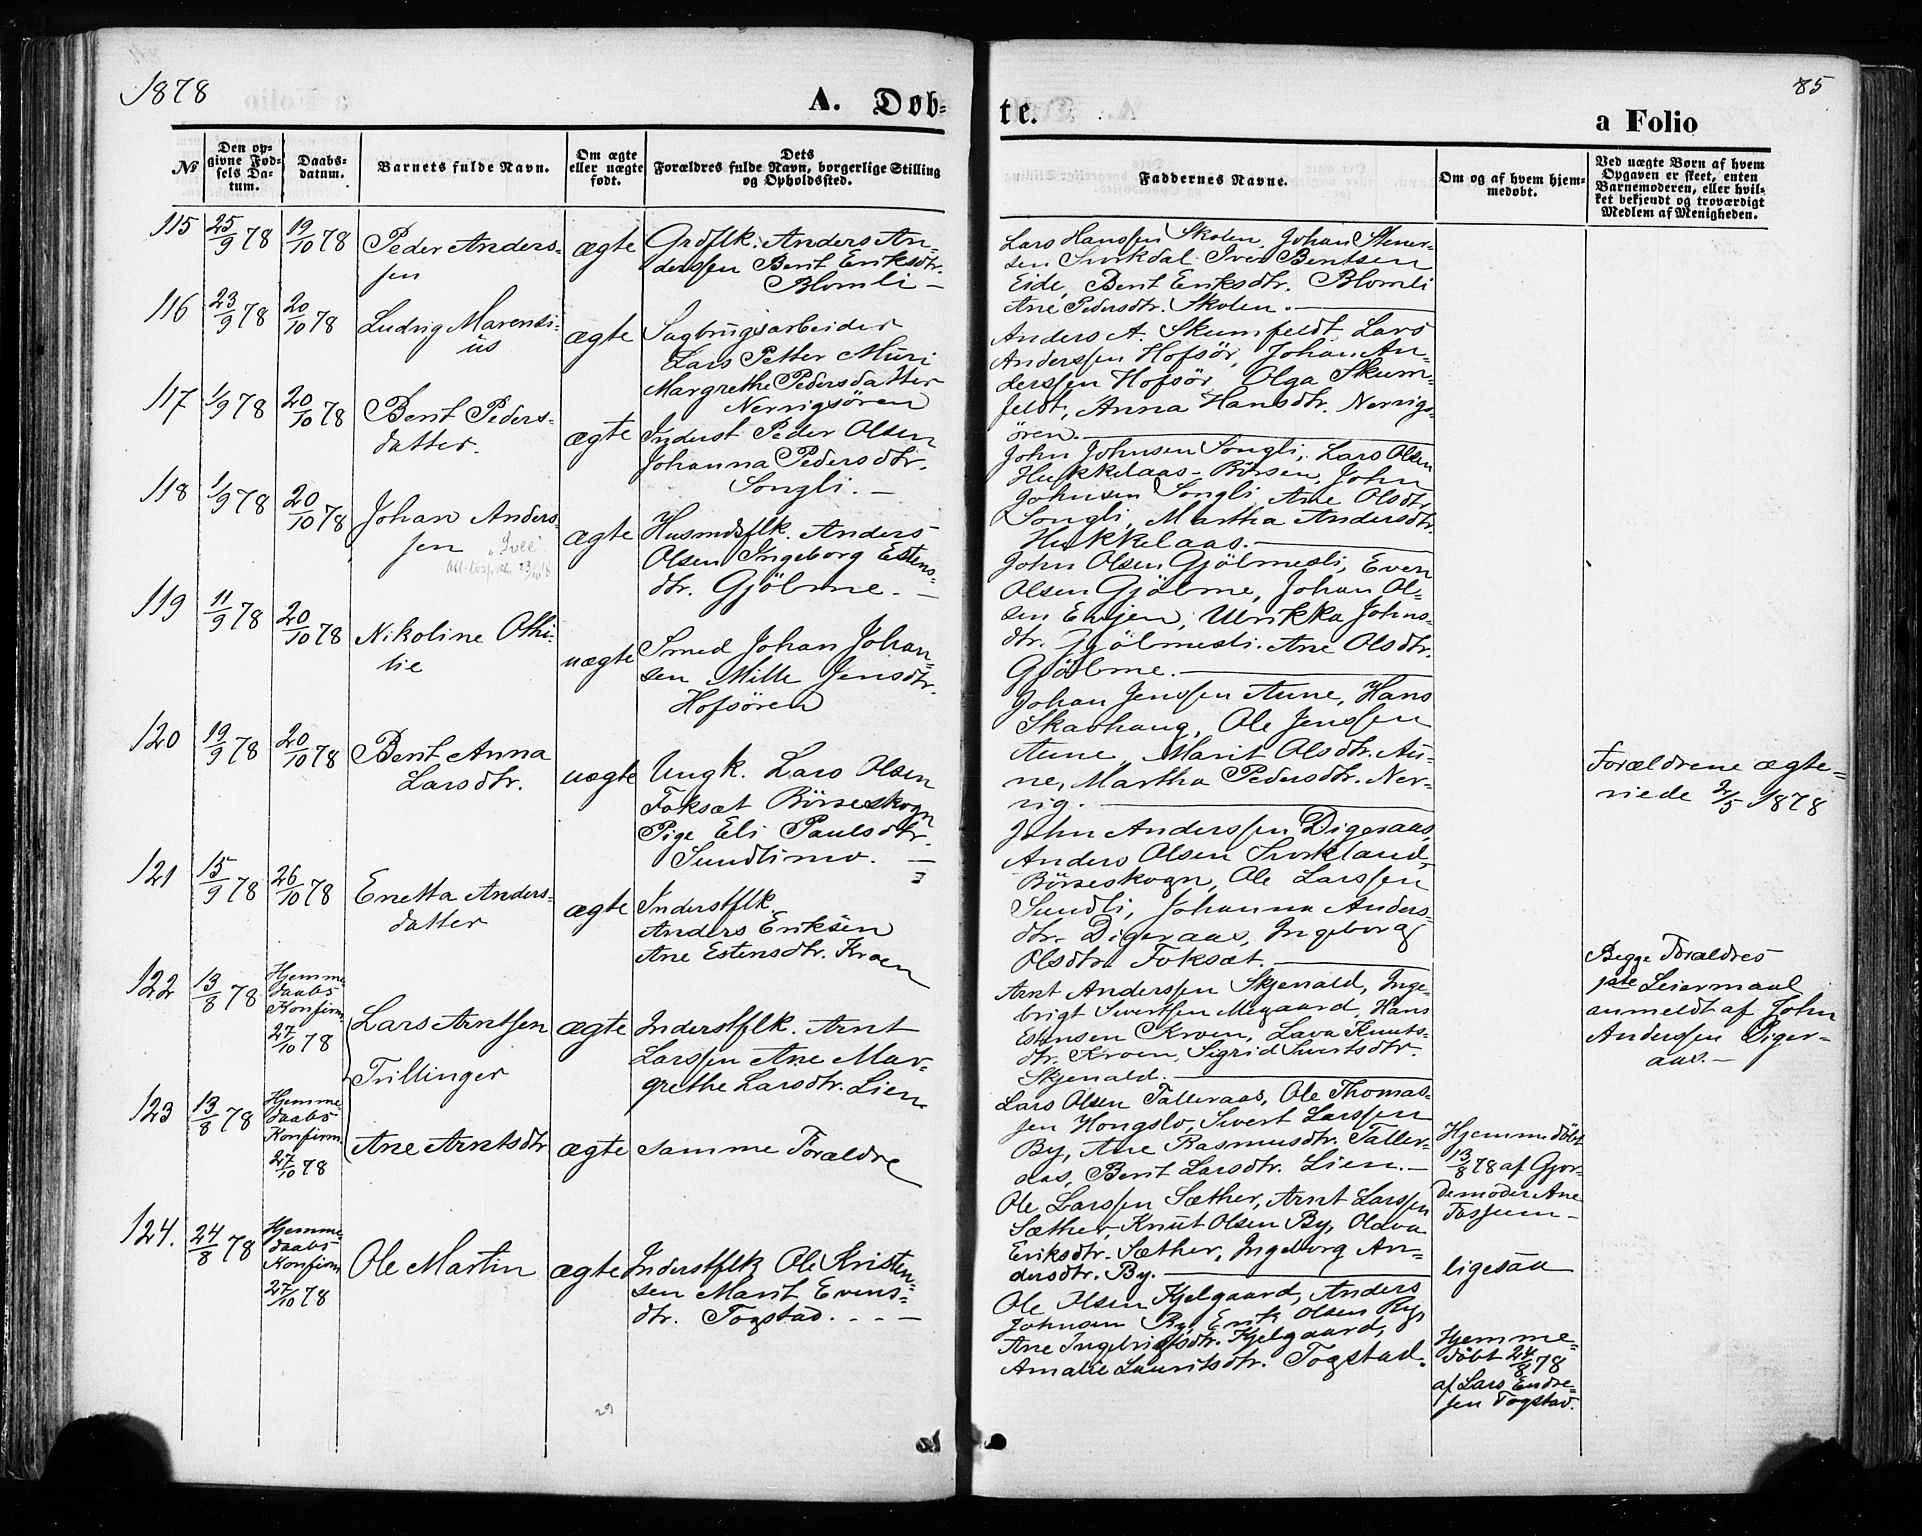 1878
A. Døb-
te.
85
a Folio
№
Den op-
givne Fød-
sels Da-
tum.
Daabs-
datum.
Barnets fulde Navn.
Om ægte
eller uægte
født.
Dets
Forældres fulde Navn, borgerlige Stilling
og Opholdssted.
Faddernes Navne.
Om og af hvem hjem-
medøbt.
Ved uægte Børn af hvem
Opgaven er skeet, enten
Barnemoderen, eller hvil-
ket bekjendt og troværdigt
Medlem af Menigheden.
115 25/9 78 19/10 78 Peder Anders-
sen
ægte
Grdflk. Anders An-
derssen Berit Eriksdtr.
Blomli —
Lars Hanssen Skolen, Johan Stener-
sen Svorkdal. Iver Bentsen
Eide, Berit Eriksdtr. Blomli
Ane Pedersdtr. Skolen. —
116 23/9 78 20/10 78 Ludvig Marensi-
us
ægte
Sagbrugsarbeider
Lars Petter Muri
Margrethe Pedersdatter
Nervigsören
Anders A. Skumfeldt, Lars
Anderssen Hofsör, Johan An-
derssen Hofsör, Olga Skum-
feldt, Anna Hansdtr. Nervigs-
ören. —
117 1/9 78 20/10 78 Berit Peders-
datter.
ægte
Inderst Peder Olsen
Johanna Pedersdtr.
Songli. —
John Johnsen Songli, Lars Olsen
Hukkelaas - Börsen, John
Johnsen Songli, Ane Olsdtr.
Songli, Martha Andersdtr.
Hukkelaas. —
118 1/9 78 20/10 78 Johan Anders-
sen
ægte
Husmdsflk. Anders
Olsen Ingeborg Estens-
dtr. Gjölme. —
John Olsen Gjölmesli, Even
Olsen Gjölme, Johan Ol-
sen Evjen, Ulrikka Johns-
dtr. Gjölmesli. Ane Olsdtr.
Gjölme. —
119 11/9 78 20/10 78 Nikoline Othi-
lie
uægte
Smed Johan Johan-
sen Mille Jensdtr.
Hofsören
Johan Jenssen Aune, Hans
Skarhaug, Ole Jenssen
Aune, Marit Olsdtr. Au-
ne, Martha Pedersdtr. Ner-
vig. —
Forældrene ægte-
viede 2/5 1878
120 19/9 78 20/10 78 Berit Anna
Larsdtr.
uægte
Ungk. Lars Olsen
Foksæt Börseskogn
Pige Eli Paulsdtr.
Sundlimo. —
John Anderssen Digeraas,
Anders Olsen Svorkland,
Börseskogn, Ole Larssen
Sundli, Johanna Anders-
dtr. Digeraas, Ingeborg
Olsdtr. Foksæt. —
Begge Forældres
1ste Leiermaal
anmeldt af John
Anderssen Diger-
aas. —
121 15/9 78 26/10 78 Enetta Anders-
datter
ægte
Inderstflk.
Anders Eriksen
Ane Estensdtr. Kroen
Arnt Anderssen Skjenald, Inge-
brigt Sivertsen Megaard, Hans
Estensen Kroen, Lava Knuts-
dtr. Kroen, Sigrid Sivertsdtr.
Skjenald. —
122 13/8 78 Hjemme-
daabs
Konfirm.
27/10 78
Lars Arntsen
Trillinger
ægte
Inderstflk. Arnt
Larssen Ane Mar-
grethe Larsdtr. Lien
Lars Olsen Talleraas, Ole Thomas-
sen Hongslo, Sivert Larssen
By, Ane Rasmusdtr. Taller-
aas, Berit Larsdtr. Lien. —
Hjemmedöbt
13/8 78 af Gjor-
demoder Ane
Fossum —
123 13/8 78 Hjemme-
daabs
Konfirm.
27/10 78
Ane Arntsdtr
ægte
samme Forældre
Ole Larssen Sæther, Arnt Larssen
Sæther, Knut Olsen By, Olava
Eriksdtr. Sæther, Ingeborg An-
dersdtr. By. —
ligesaa
124. 24/8 78 Hjemme-
daabs
Konfirm
27/10 78
Ole Martin
ægte
Inderstflk Ole Kristen-
sen Marit Evens-
dtr. Togstad. . . —
Ole Olsen Kjelgaard, Anders
Johnsen By, Erik Olsen By,
Ane Ingebrigtsdtr. Kjelgaard,
Amalie Lauritsdtr. Togstad.
Hjemme-
döbt 24/8 78
af Lars Endre-
sen Togstad.